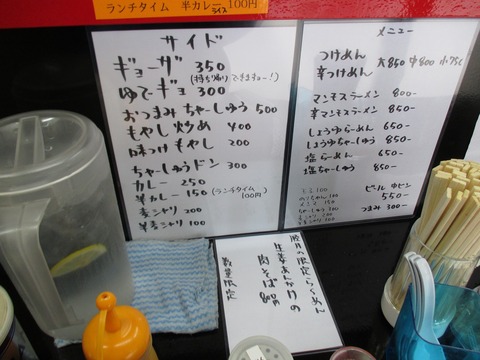 ランチタイム 半カレーライス 100円
サイド
ギョーザ 350
(持ち帰りできますよー!)
ゆでギョ 300
おつまみちゃーしゅう 500
もやし炒め 400
味つけもやし 200
ちゃーしゅうドン 300
カレー 250
半カレー 150 (ランチタイム 100円)
麦シャリ 200
半麦シャリ 100
メニュー
つけめん
辛つけめん 大850 中800 小750
マンモスラーメン 800-
辛マンモスラーメン 850-
しょうゆらーめん 650-
しょうゆちゃーしゅう 850-
塩らーめん 650-
塩ちゃーしゅう 850-
ビール 中ビン
550-
つまみ 300-
のりちゃん 100
メンマ 150
ちゃーしゅう 300
麦シャリ 200
半麦シャリ 100
限定らーめん
生姜あんかけの
肉そば 800円
数量限定